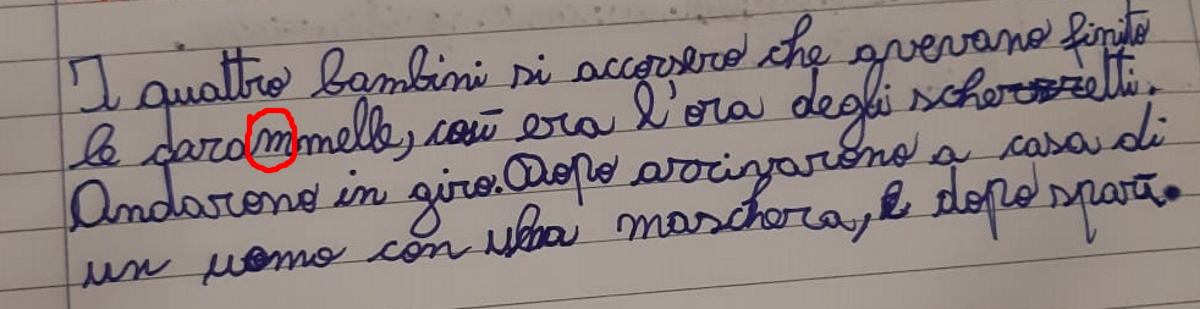 I quattro bambini si accorsero che avevano finito
le carammelle, così era l'ora degli scherzetti.
Andarono in giro. Dopo arrivarono a casa di
un uomo con una maschera, e dopo sparì.